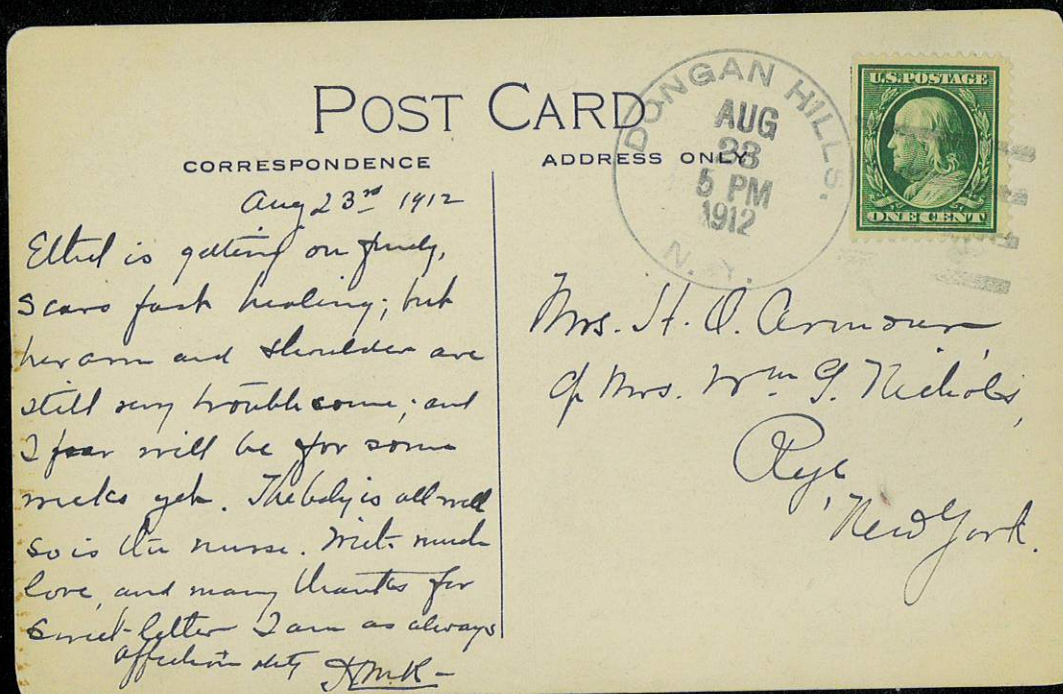 POST CARD
CORRESPONDENCE
ADDRESS ONLY
DONGAN HILLS.
AUG
23
5 PM
1912
N. Y.
U.S. POSTAGE
ONE CENT
Aug 23rd 1912
Ethel is getting on finely,
scars fast healing; but
her arm and shoulder are
still very troublesome; and
I fear will be for some
weeks yet. The baby is all well
so is the nurse. With much
love, and many thanks for
sweet letter I am as always
affectionately HMR-
Mrs. H. O. Armour,
c/o Mrs. Wm G. Nichols,
Rye,
New York.